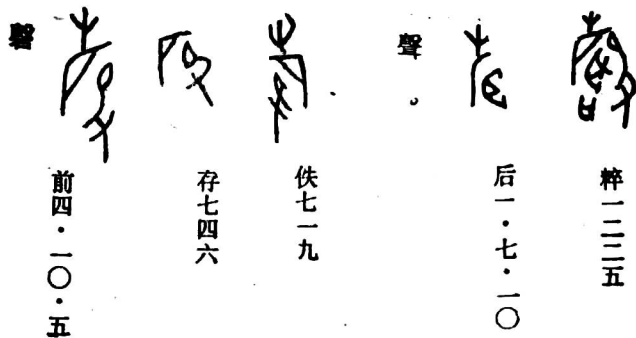 粹一二二五
后一·七·一〇
聲
佚七一九
存七四六
前四·一〇·五
磬